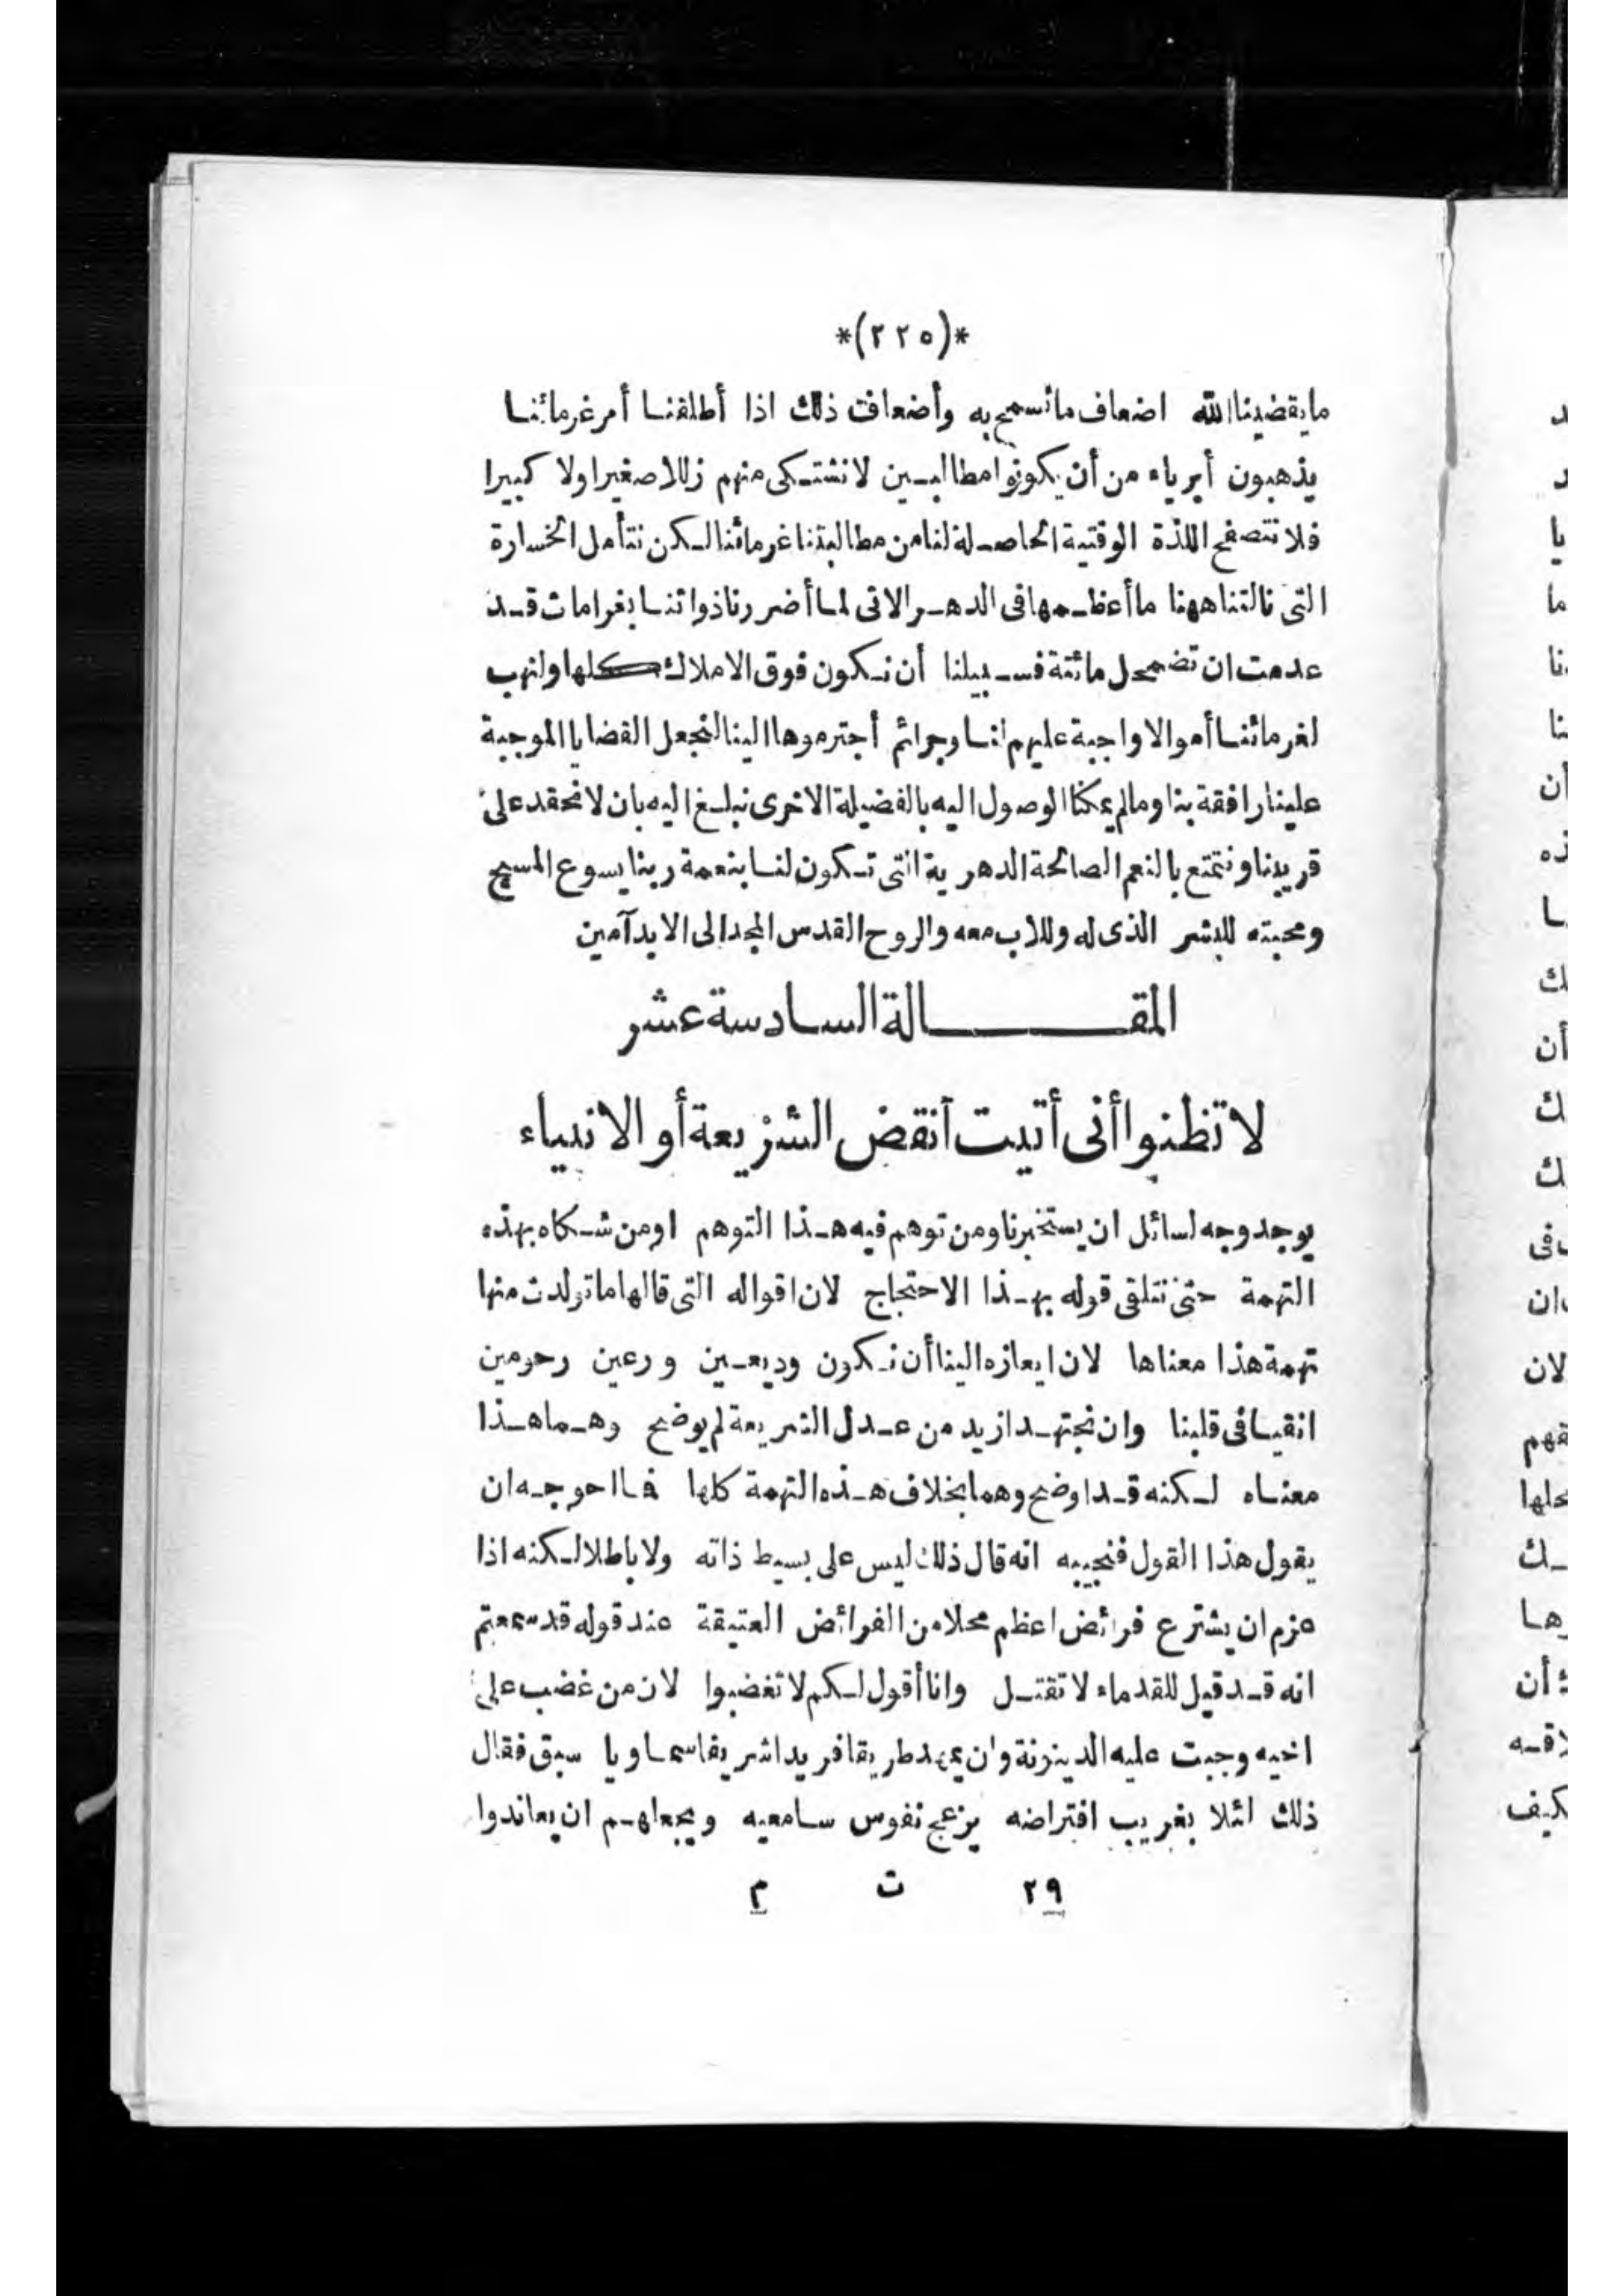 *(٢٢٥)*
ما يقضينا الله اضعاف ما نسمح به وأضعافت ذلك اذا أطلقنا أمر غرمائنا
يذهبون أبرياء من أن يكونوا مطالبين لانشتكى منهم زللا صغيرا ولا كبيرا
فلا نتصفح اللذة الوقتية الحاصلة لنا من مطالبتنا غرمائنا لكن نتأمل الخسارة
التى نالتنا ههنا ما أعظمها فى الدهر الاتى لما أضررنا ذواتنا بغرامات قد
عدمت ان تضمحل مائتة فسبيلنا أن نكون فوق الاملاك كلها ولنهب
لغرمائنا أموالا واجبة عليهم لنا وجرائم أجترموها الينا لنجعل القضايا الموجبة
علينا رافقة بنا ومالم يمكنا الوصول اليه بالفضيلة الاخرى نبلغ اليه بان لانحقد على
قريبنا ونتمتع بالنعم الصالحة الدهرية التى تكون لنا بنعمة ربنا يسوع المسيح
ومحبته للبشر الذى له وللاب معه والروح القدس المجد الى الابد آمين
المقالة السادسة عشر
لا تظنوا أنى أتيت أنقض الشريعة أو الانبياء
يوجد وجه لسائل ان يستخبرنا ومن توهم فيه هذا التوهم اومن شكاه بهذه
التهمة حتى نتلقى قوله بهذا الاحتجاج لان اقواله التى قالها ما تولدت منها
تهمة هذا معناها لان ايعازه الينا أن نكون وديعين ورعين رحومين
انقيا فى قلبنا وان نجتهد ازيد من عدل الشريعة لم يوضح وهما هذا
معناه لكنه قد اوضح وهما بخلاف هذه التهمة كلها فما احوجه ان
يقول هذا القول فنجيبه انه قال ذلك ليس على بسيط ذاته ولا باطلا لكنه اذا
عزم ان يشترع فرائض اعظم محلا من الفرائض العتيقة عند قوله قد سمعتم
انه قد قيل للقدماء لا تقتل وانا أقول لكم لا تغضبوا لان من غضب على
اخيه وجبت عليه الدينونة وان يمهد طريقا فريدا شريفا سماويا سبق فقال
ذلك لئلا بغريب افتراضه يزعج نفوس سامعيه ويجعلهم ان يعاندوا
٢٩ ت م